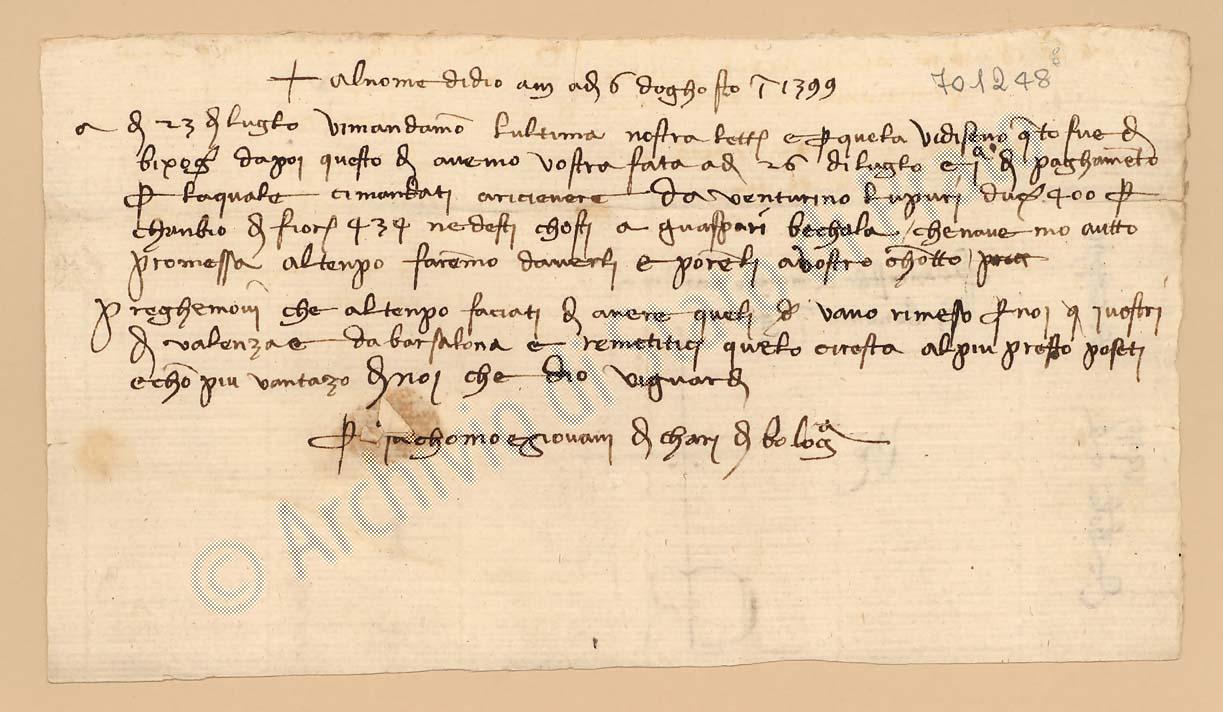 + al nome di dio am adi 6 daghosto 1399
701248
a di 23 di luglo vi mandamo lultima nostra lett e per quela vi diseno qto fue di
bixog dapoi questo di avemo vostra fata adi 26 di luglo e di paghamento
per la quale ci mandati a ricievere da venturino lupari duc 400 per
chanbio di fior 434 ne desti chosti a guaspari bechala che navemo autto
promessa al tenpo faremo daverli e poreli a vostro chonto
preghemovi che al tenpo faciati di avere queli vano rimeso per noi i vostri
di valenza e da barsalona e remetitici quelo ci resta al piu presto poseti
e chon piu vantazo di noi che dio vi guardi
per iachomo e giovani di chari di bologa
© Archivio di Stato